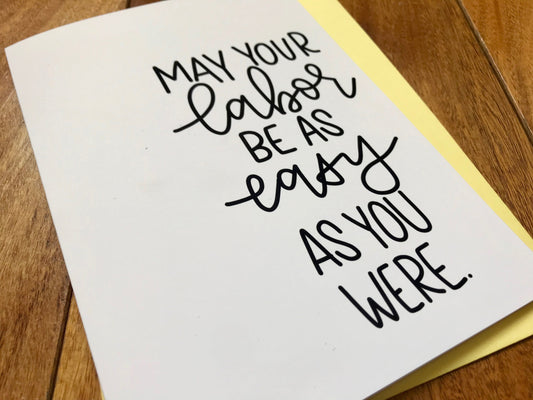 MAY YOUR
labor
BE AS
easy
AS YOU
WERE.